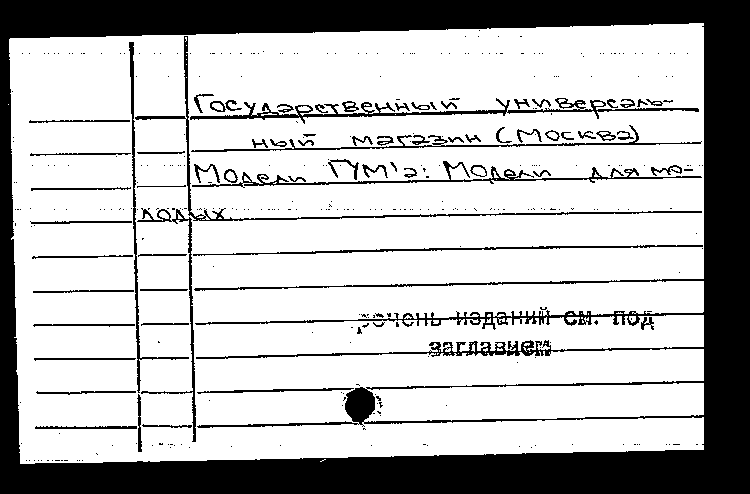 Государственный универсаль-
ный магазин (Москва)
Модели ГУМ'а: Модели для мо-
лодых.
речень изданий см. под
заглавием